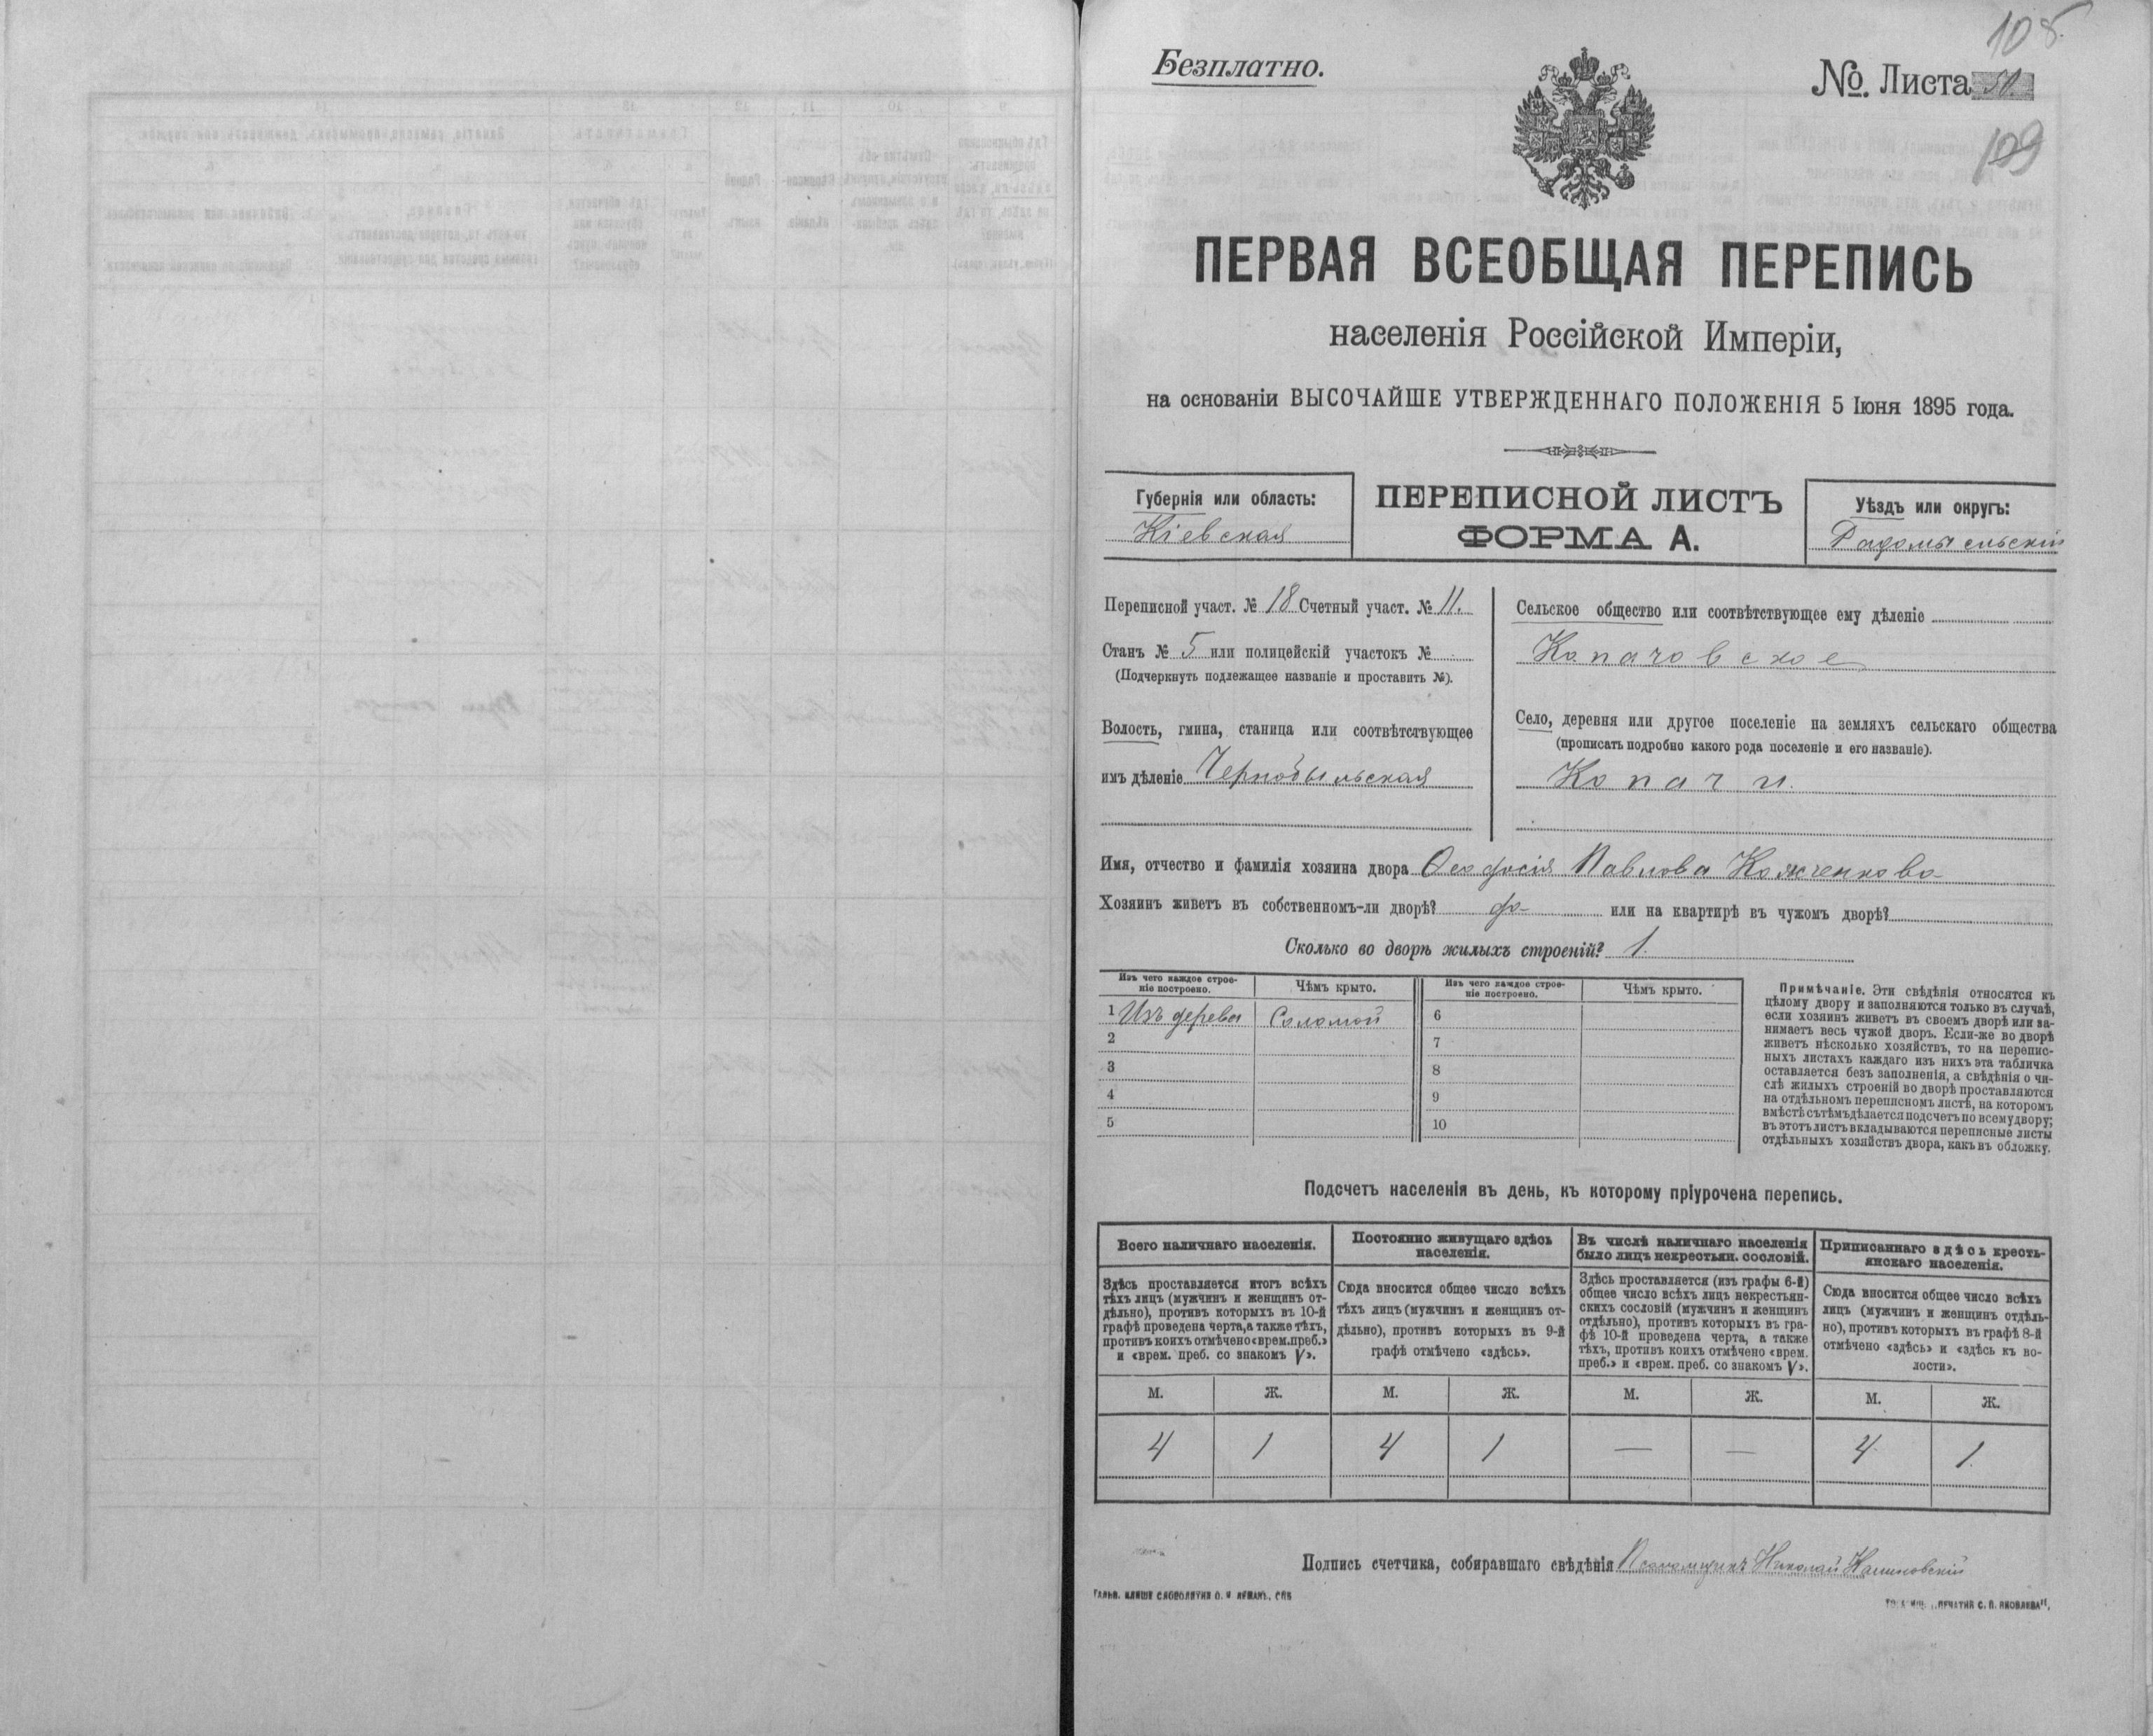 108.
Безплатно.
№ Листа 50.
109
ПЕРВАЯ ВСЕОБЩАЯ ПЕРЕПИСЬ
населенія Россійской Имперіи,
на основаніи ВЫСОЧАЙШЕ УТВЕРЖДЕННАГО ПОЛОЖЕНІЯ 5 Іюня 1895 года.
Губернія или область:
Кіевская
ПЕРЕПИСНОЙ ЛИСТЪ
ФОРМА А.
Уѣздъ или округъ:
Радомысльскій
Переписной участ. № 18 Счетный участ. № 11.
Станъ № 5 или полицейскій участокъ №
(Подчеркнуть подлежащее названіе и проставить №).
Волость, гмина, станица или соотвѣтствующее
имъ дѣленіе Чернобыльская
Сельское общество или соотвѣтствующее ему дѣленіе
Копачовское
Село, деревня или другое поселеніе на земляхъ сельскаго общества
(прописать подробно какого рода поселеніе и его названіе).
Копачи.
Имя, отчество и фамилія хозяина двора Ѳеодосія Павлова
Хозяинъ живетъ въ собственномъ-ли дворѣ? да или на квартирѣ въ чужомъ дворѣ?
Сколько во дворѣ жилыхъ строеній? 1.
Изъ чего каждое строе-
ніе построено.
Чѣмъ крыто.
Изъ чего каждое строе-
ніе построено.
Чѣмъ крыто.
1 Изъ дерева Соломой 6
2 7
3 8
4 9
5 10
Примѣчаніе. Эти свѣдѣнія относятся къ
цѣлому двору и заполняются только въ случаѣ,
если хозяинъ живетъ въ своемъ дворѣ или за-
нимаетъ весь чужой дворъ. Если-же во дворѣ
живетъ нѣсколько хозяйствъ, то на перепис-
ныхъ листахъ каждаго изъ нихъ эта табличка
оставляется безъ заполненія, а свѣдѣнія о чи-
слѣ жилыхъ строеній во дворѣ проставляются
на отдѣльномъ переписномъ листѣ, на которомъ
вмѣстѣ съ тѣмъ дѣлается подсчетъ по всему двору;
въ этотъ листъ вкладываются переписные листы
отдѣльныхъ хозяйствъ двора, какъ въ обложку.
Подсчетъ населенія въ день, къ которому пріурочена перепись.
Всего наличнаго населенія.
Здѣсь проставляется итогъ всѣхъ
тѣхъ лицъ (мужчинъ и женщинъ от-
дѣльно), противъ которыхъ въ 10-й
графѣ проведена черта, а также тѣхъ,
противъ коихъ отмѣчено «врем. преб.»
и «врем. преб. со знакомъ V».
Постоянно живущаго здѣсь
населенія.
Сюда вносится общее число всѣхъ
тѣхъ лицъ (мужчинъ и женщинъ от-
дѣльно), противъ которыхъ въ 9-й
графѣ отмѣчено «здѣсь».
Въ числѣ наличнаго населенія
было лицъ некрестьян. сословій.
Здѣсь проставляется (изъ графы 6-й)
общее число всѣхъ лицъ некрестьян-
скихъ сословій (мужчинъ и женщинъ
отдѣльно), противъ которыхъ въ гра-
фѣ 10-й проведена черта, а также
тѣхъ, противъ коихъ отмѣчено «врем.
преб.» и «врем. преб. со знакомъ V».
Приписаннаго здѣсь кресть-
янскаго населенія.
Сюда вносится общее число всѣхъ
лицъ (мужчинъ и женщинъ отдѣль-
но), противъ которыхъ въ графѣ 8-й
отмѣчено «здѣсь» и «здѣсь къ во-
лости».
М. Ж. М. Ж. М. Ж. М. Ж.
4 1 4 1 — — 4 1.
Подпись счетчика, собиравшаго свѣдѣнія Псаломщикъ Николай Калиновскій